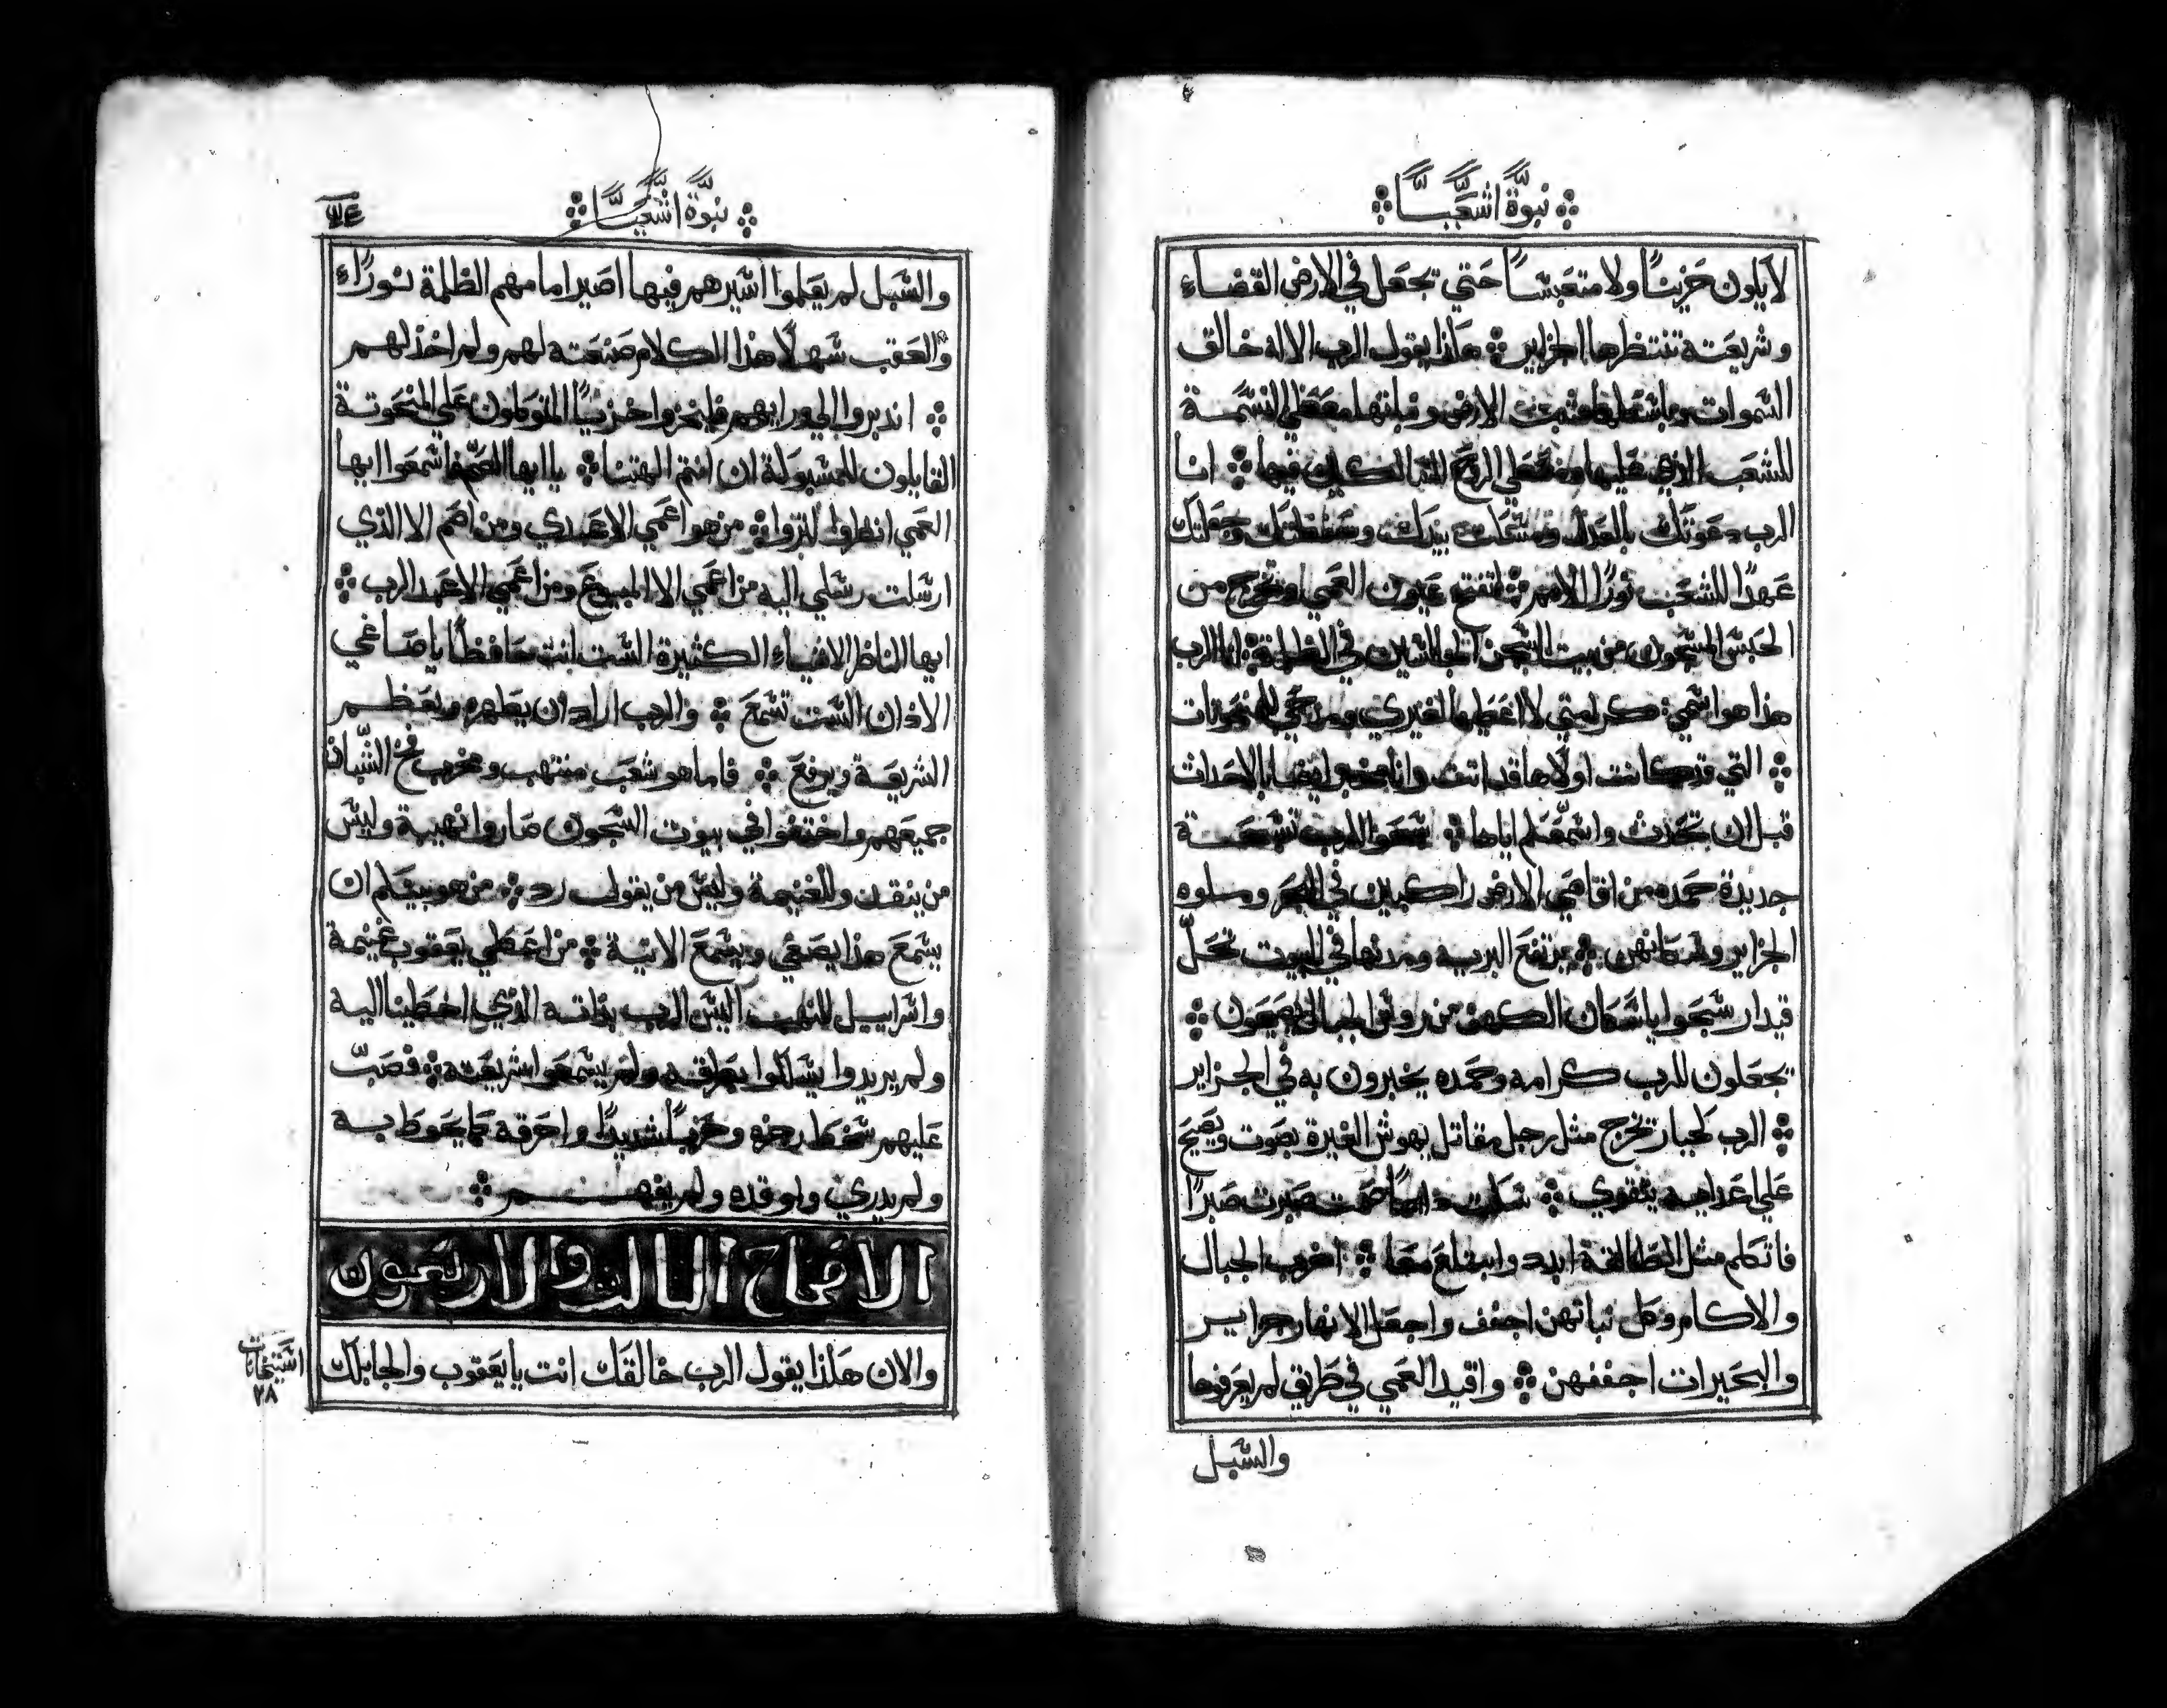 نبوة اشعيا
لا يكون حزينًا ولا متعبسًا حتي يجعل في الارض القضاء
وشريعته تنتظرها الجزاير هكذا يقول الرب الاله خالق
السموات الارض معطي النسمة
للشعب الذي عليها فيها انا
الرب دعوتك بالعدل ومسكت بيدك وحفظتك وجعلتك
عهدًا للشعب نورًا للامم لتفتح عيون العمي وتخرج من
الحبس المسجون من بيت السجن الجالسين في الظلمة انا الرب
هذا هو اسمي كرامتي لا اعطيها لغيري ومدحي للمنحوتات
التي كانت اولا ها قد اتت وانا ايضا بالاحداث
قبل ان تحدث واسمعكم اياها سبحوا الرب تسبحة
جديدة حمده من اقاصي الارض راكبين في البحر وملوه
الجزاير وسكانهن يرتفع البريه ومدنها في البيوت تحل
قيدار سبحوا يا سكان الكهف من روس الجبال يصيحون
يجعلون للرب كرامه وحمده يخبرون به في الجزاير
الرب كجبار يخرج مثل رجل مقاتل يهوش الغيرة يصوت ويصيح
علي اعدايه يتقوي سكت دايمًا صمت صبرت صبرًا
فاتكلم مثل الطالقة ابدد وابتلع معا اخرب الجبال
والاكام وكل نباتهن اجفف واجعل الانهار جزاير
والبحيرات اجففهن واقيد العمي في طريق لم يعرفوها
والسبل
نبوة اشعيا
والسبل لم يعلموا اسيرهم فيها اصير امامهم الظلمة نورًا
والعقب سهلًا هذا الكلام صنعته لهم ولم اخذلهم
اندبروا الي ورايهم فليخزوا خزيًا المتوكلون علي المنحوتة
القايلون للمسبوكة ان انتم الهتنا يا ايها الصم اسمعوا ايها
العمي انظروا لتروا من هو اعمي الا عبدي ومن اصم الا الذي
ارسلت رسلي اليه من اعمي الا المبيوع ومن اعمي الا عبد الرب
ايها الناظر الاشياء الكثيرة الست انت حافظًا يا صاغي
الاذان الست تسمع والرب اراد ان يطهره ويعظم
الشريعة ويرفع فاما هو شعب منتهب ومخرب فخ الشبان
جميعهم واختفوا في بيوت السجون صاروا نهيبة وليس
من ينقذ وللغنيمة وليس من يقول رد من هو بينكم ان
يسمع هذا يصغي ويسمع الاتية من اعطي يعقوب غنيمة
واسراييل للنهب اليس الرب بذاته الذي اخطينا اليه
ولم يريدوا يسلكوا بطرقه ولم يسمعوا شريعته فصب
عليهم سخط رجزه وحربًا شديدًا واحرقه كما يحوط به
ولم يدري واوقده ولم يفهم
الاصحاح الثالث والاربعون
والان هكذا يقول الرب خالقك انت يا يعقوب والجابلك